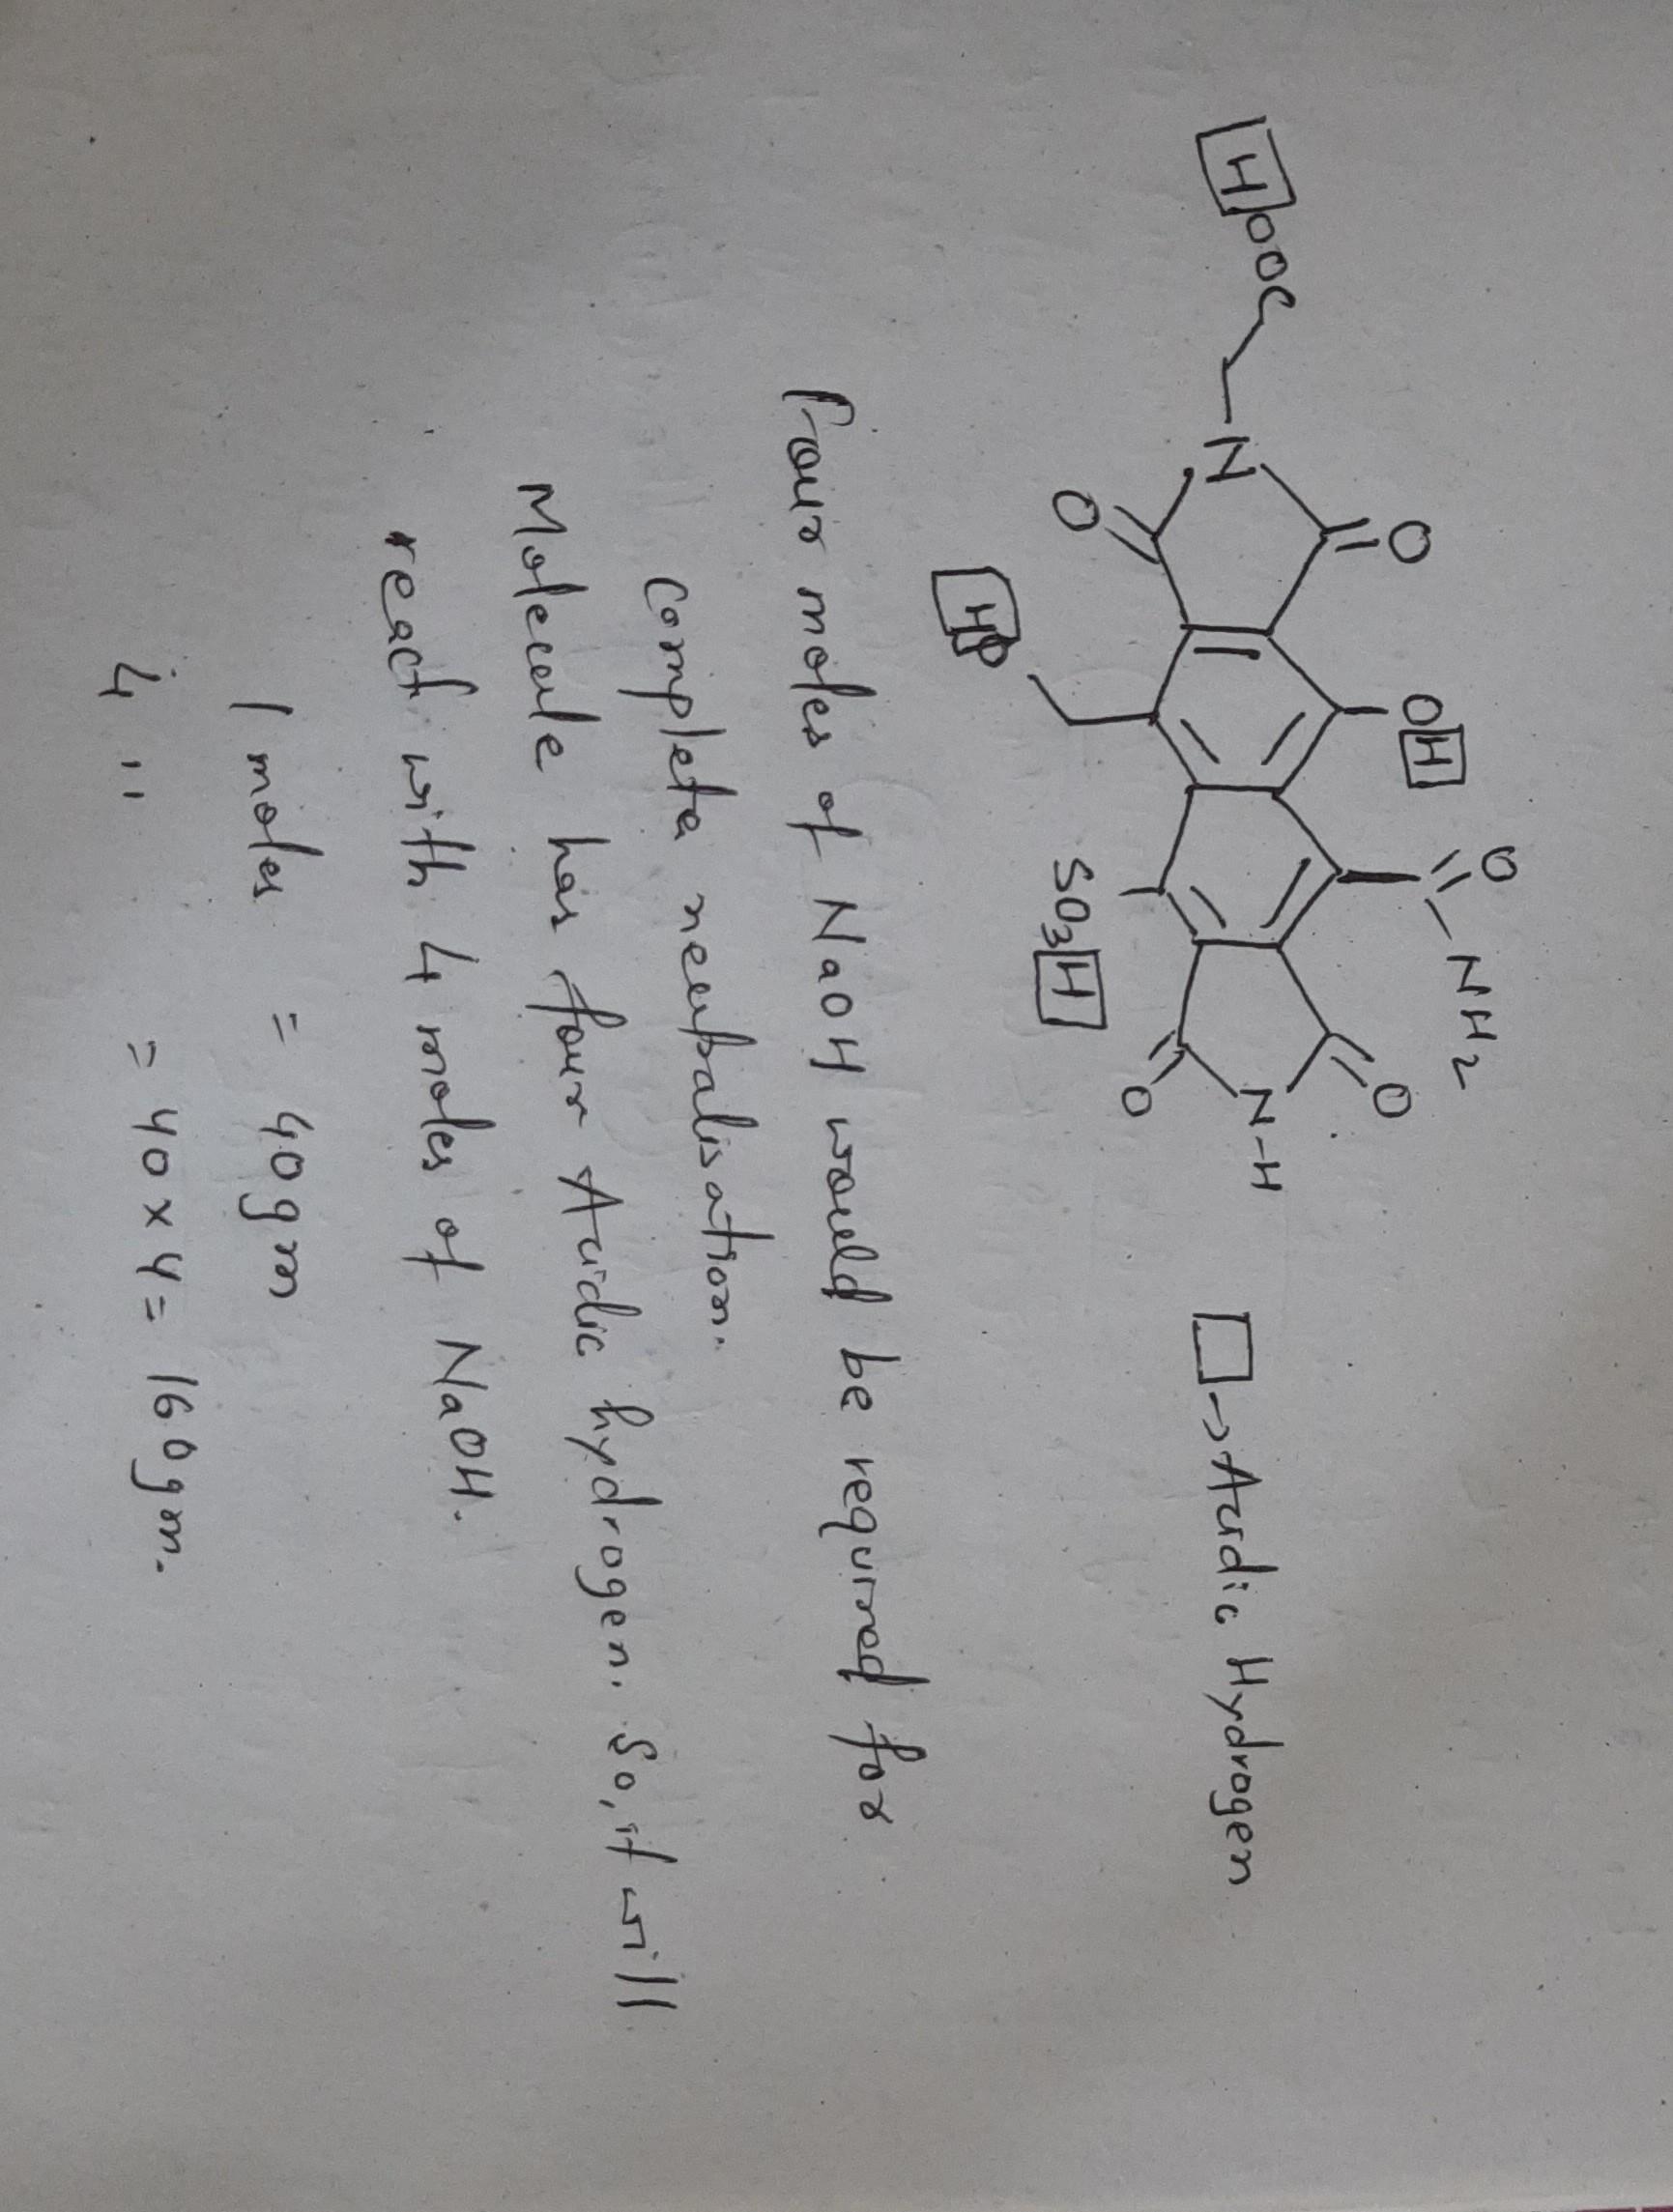 HOOC
N
O
O
OH
HO
O
NH2
SO3H
O
O
N-H
□→Acidic Hydrogen
Four moles of NaOH would be required for
Complete neutralisation.
Molecule has four Acidic hydrogen. So, it will
react with 4 moles of NaOH.
1 moles = 40gm
4 " = 40 x 4 = 160gm.